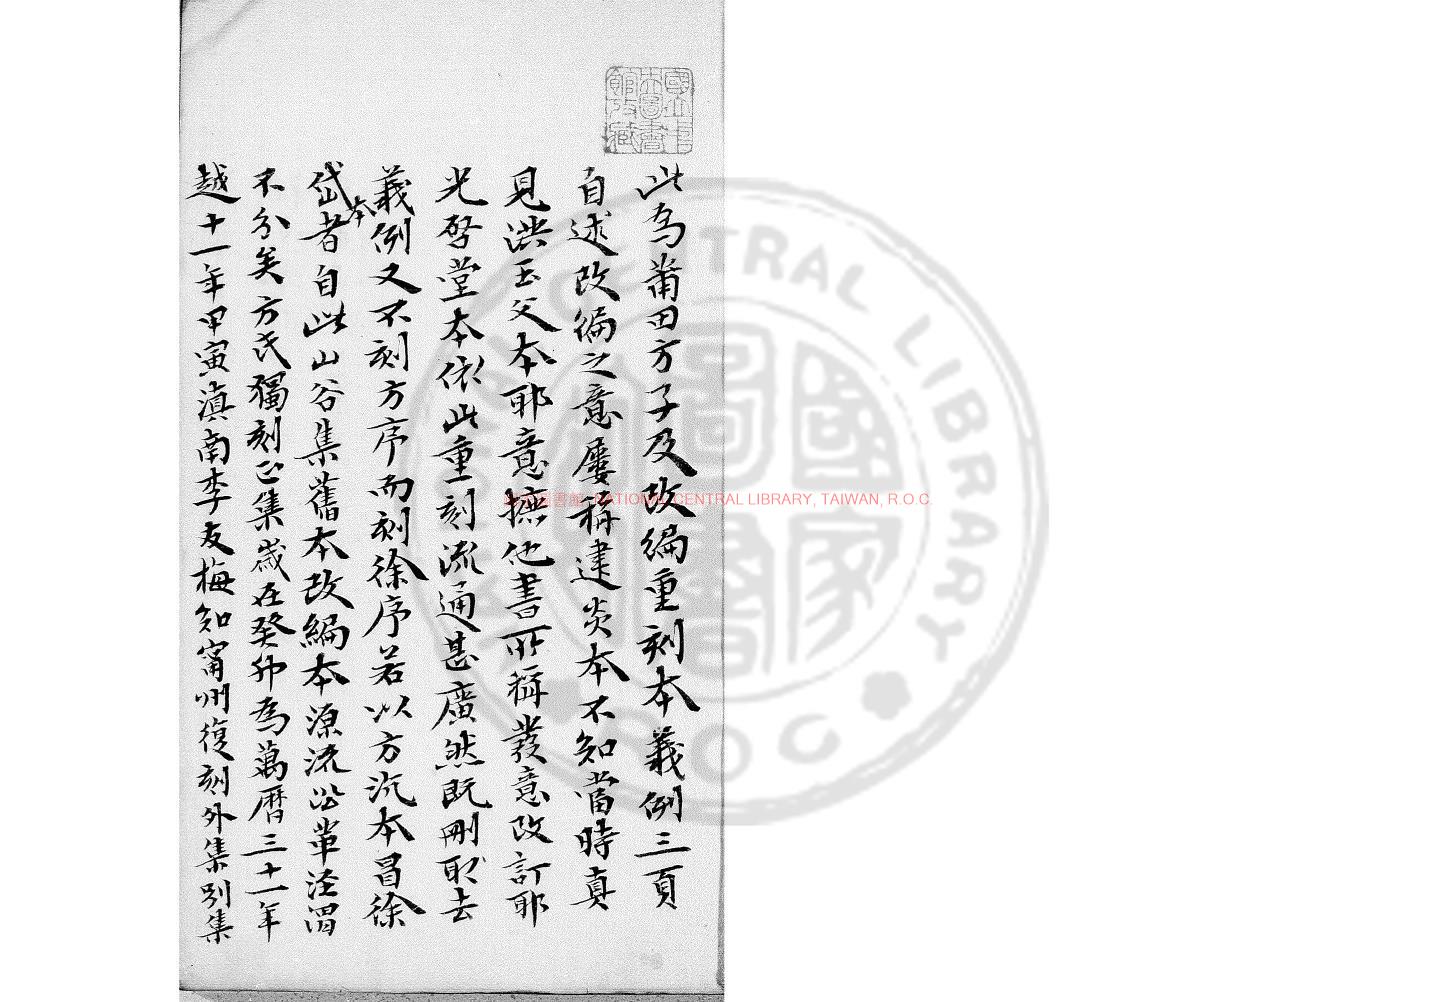 此為莆田方子及改編重刻本義例三頁
自述改編之意屢稱建炎本不知當時真
見洪玉父本耶意摭他書所稱發意改訂耶
光啓堂本依此重刻流通甚廣然既刪取去
義例又不刻方序而刻徐序若以方沆本昌徐
岱本者自此山谷集舊本改編本源流涇渭
不分矣方氏獨刻正集歲在癸卯為萬曆三十一年
越十一年甲寅滇南李友梅知甯州復刻外集別集
國立中央圖書館收藏
NATIONAL CENTRAL LIBRARY, TAIWAN, R.O.C.
CENTRAL LIBRARY
ROC
國家圖書